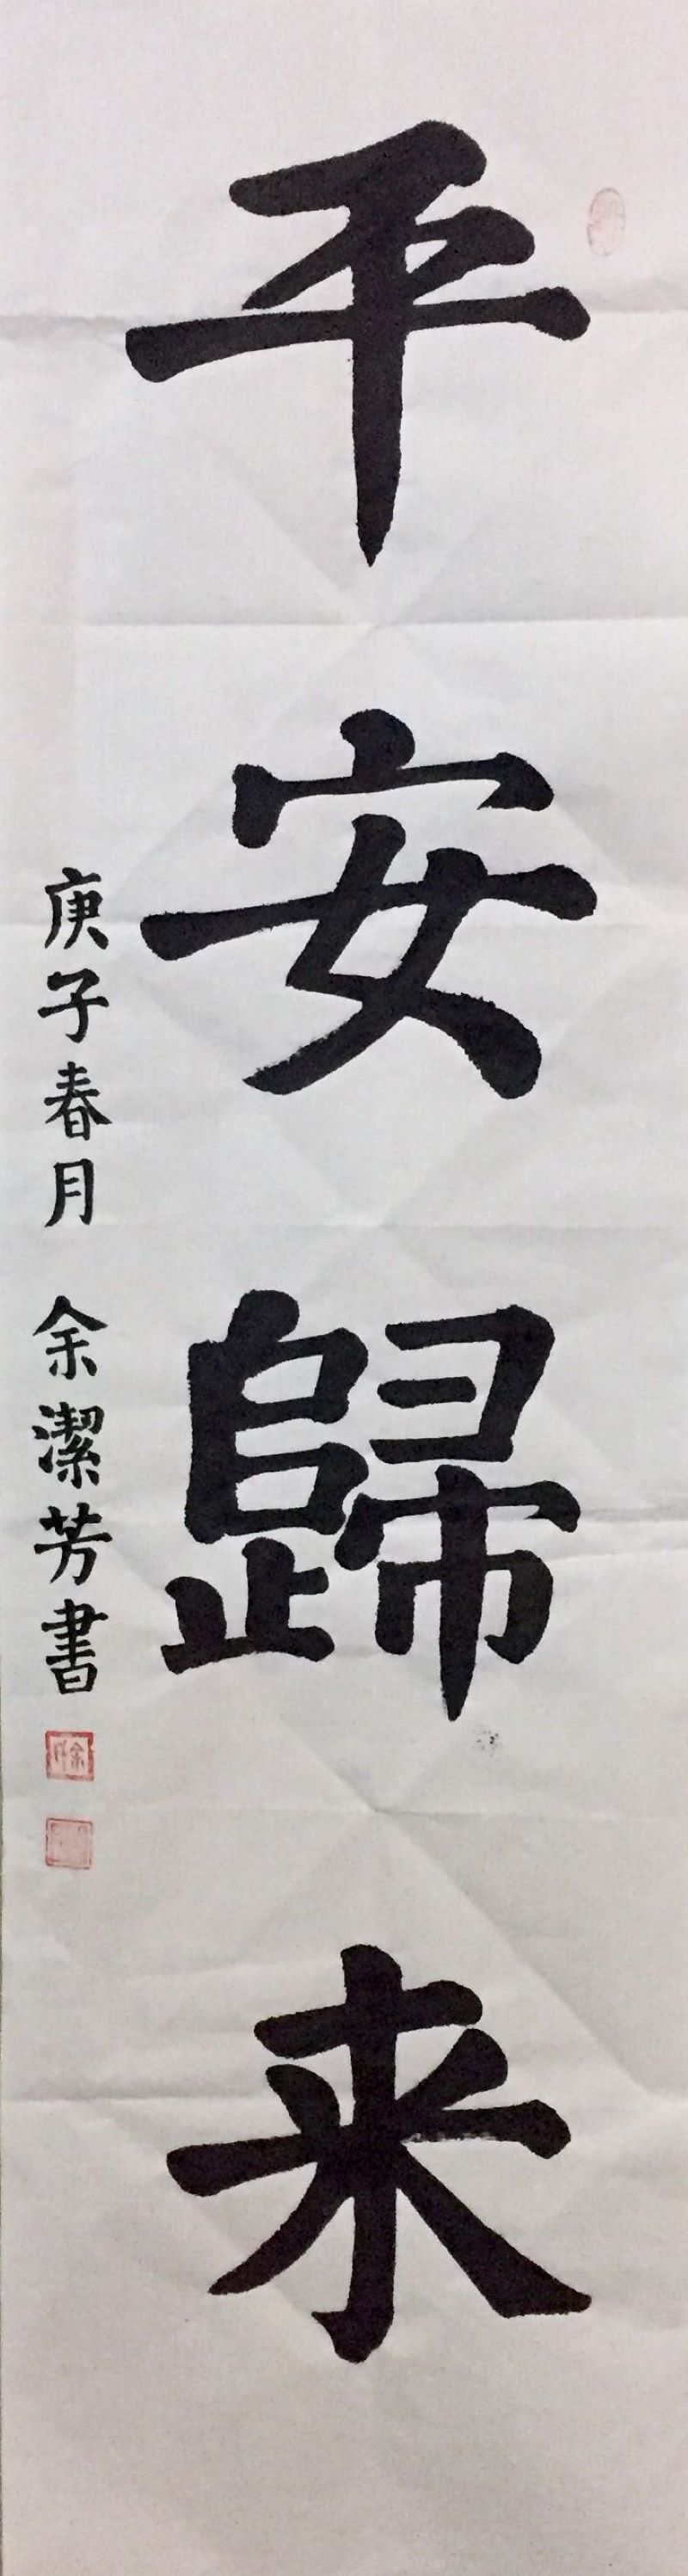 平安歸来
庚子春月 余潔芳書